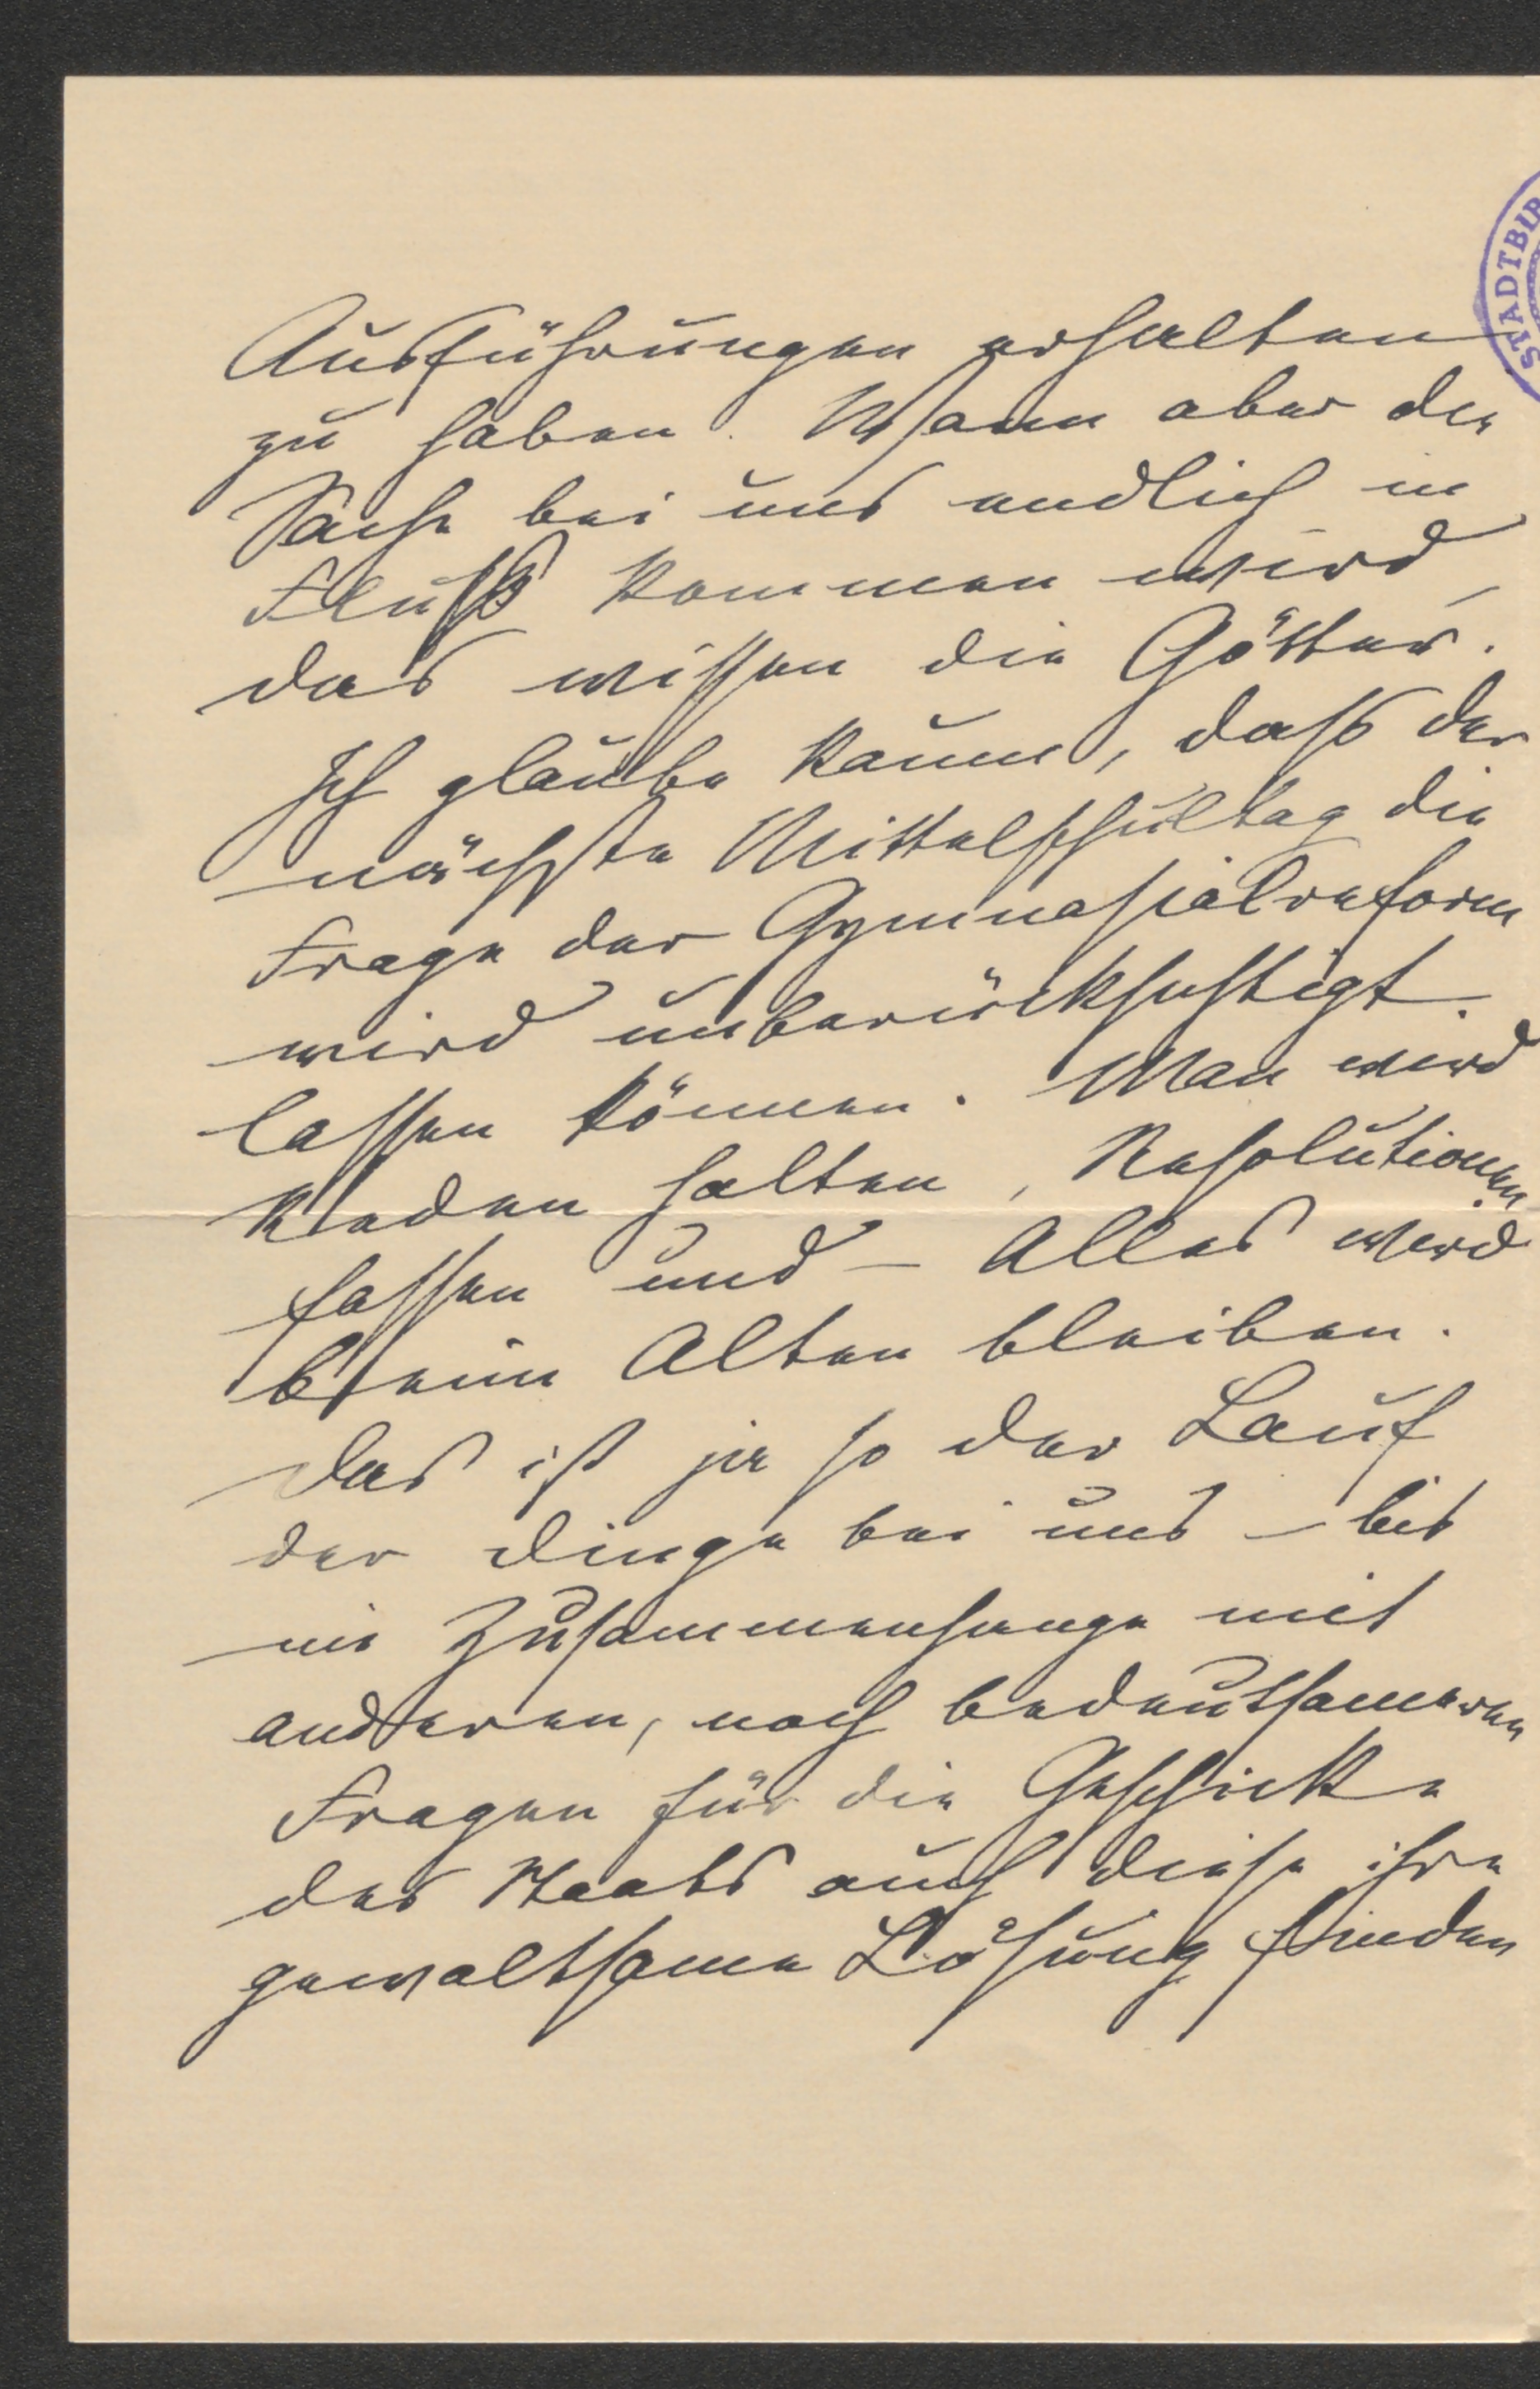 Ausführungen erhalten
zu haben. Wann aber die
Sache bei uns endlich in
Fluß kommen wird,
das wissen die Götter.
Ich glaube kaum, dass der
nächste Mittelschultag die
Frage der Gymnasialreform
wird unberücksichtigt
lassen können. Man wird
Reden halten, Resolutionen
fassen und – Alles wird
beim Alten bleiben.
Das ist ja so der Lauf
der Dinge bei uns – bis
im Zusammenhange mit
anderen, noch bedeutsameren
Fragen für die Geschicke
des Staats auch diese ihre
gewaltsame Lösung finden
STADTBIB